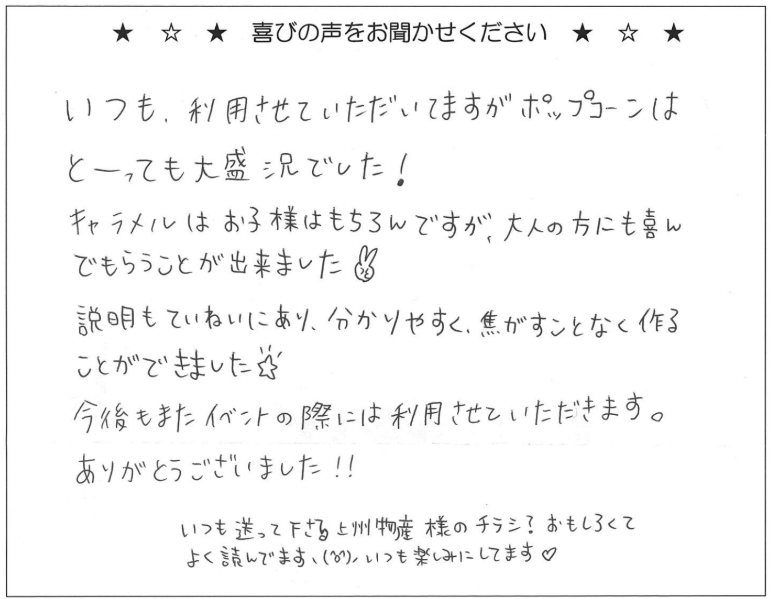 ★ ☆ ★ 喜びの声をお聞かせください ★ ☆ ★
いつも、利用させていただいてますがポップコーンは
と〜っても大盛況でした!
キャラメルはお子様はもちろんですが、大人の方にも喜ん
でもらうことが出来ました✌
説明もていねいにあり、分かりやすく、焦がすことなく作る
ことができました☆
今後もまたイベントの際には利用させていただきます。
ありがとうございました!!
いつも送って下さる上州物産様のチラシ?おもしろくて
よく読んでます、(^o^)ノいつも楽しみにしてます♡